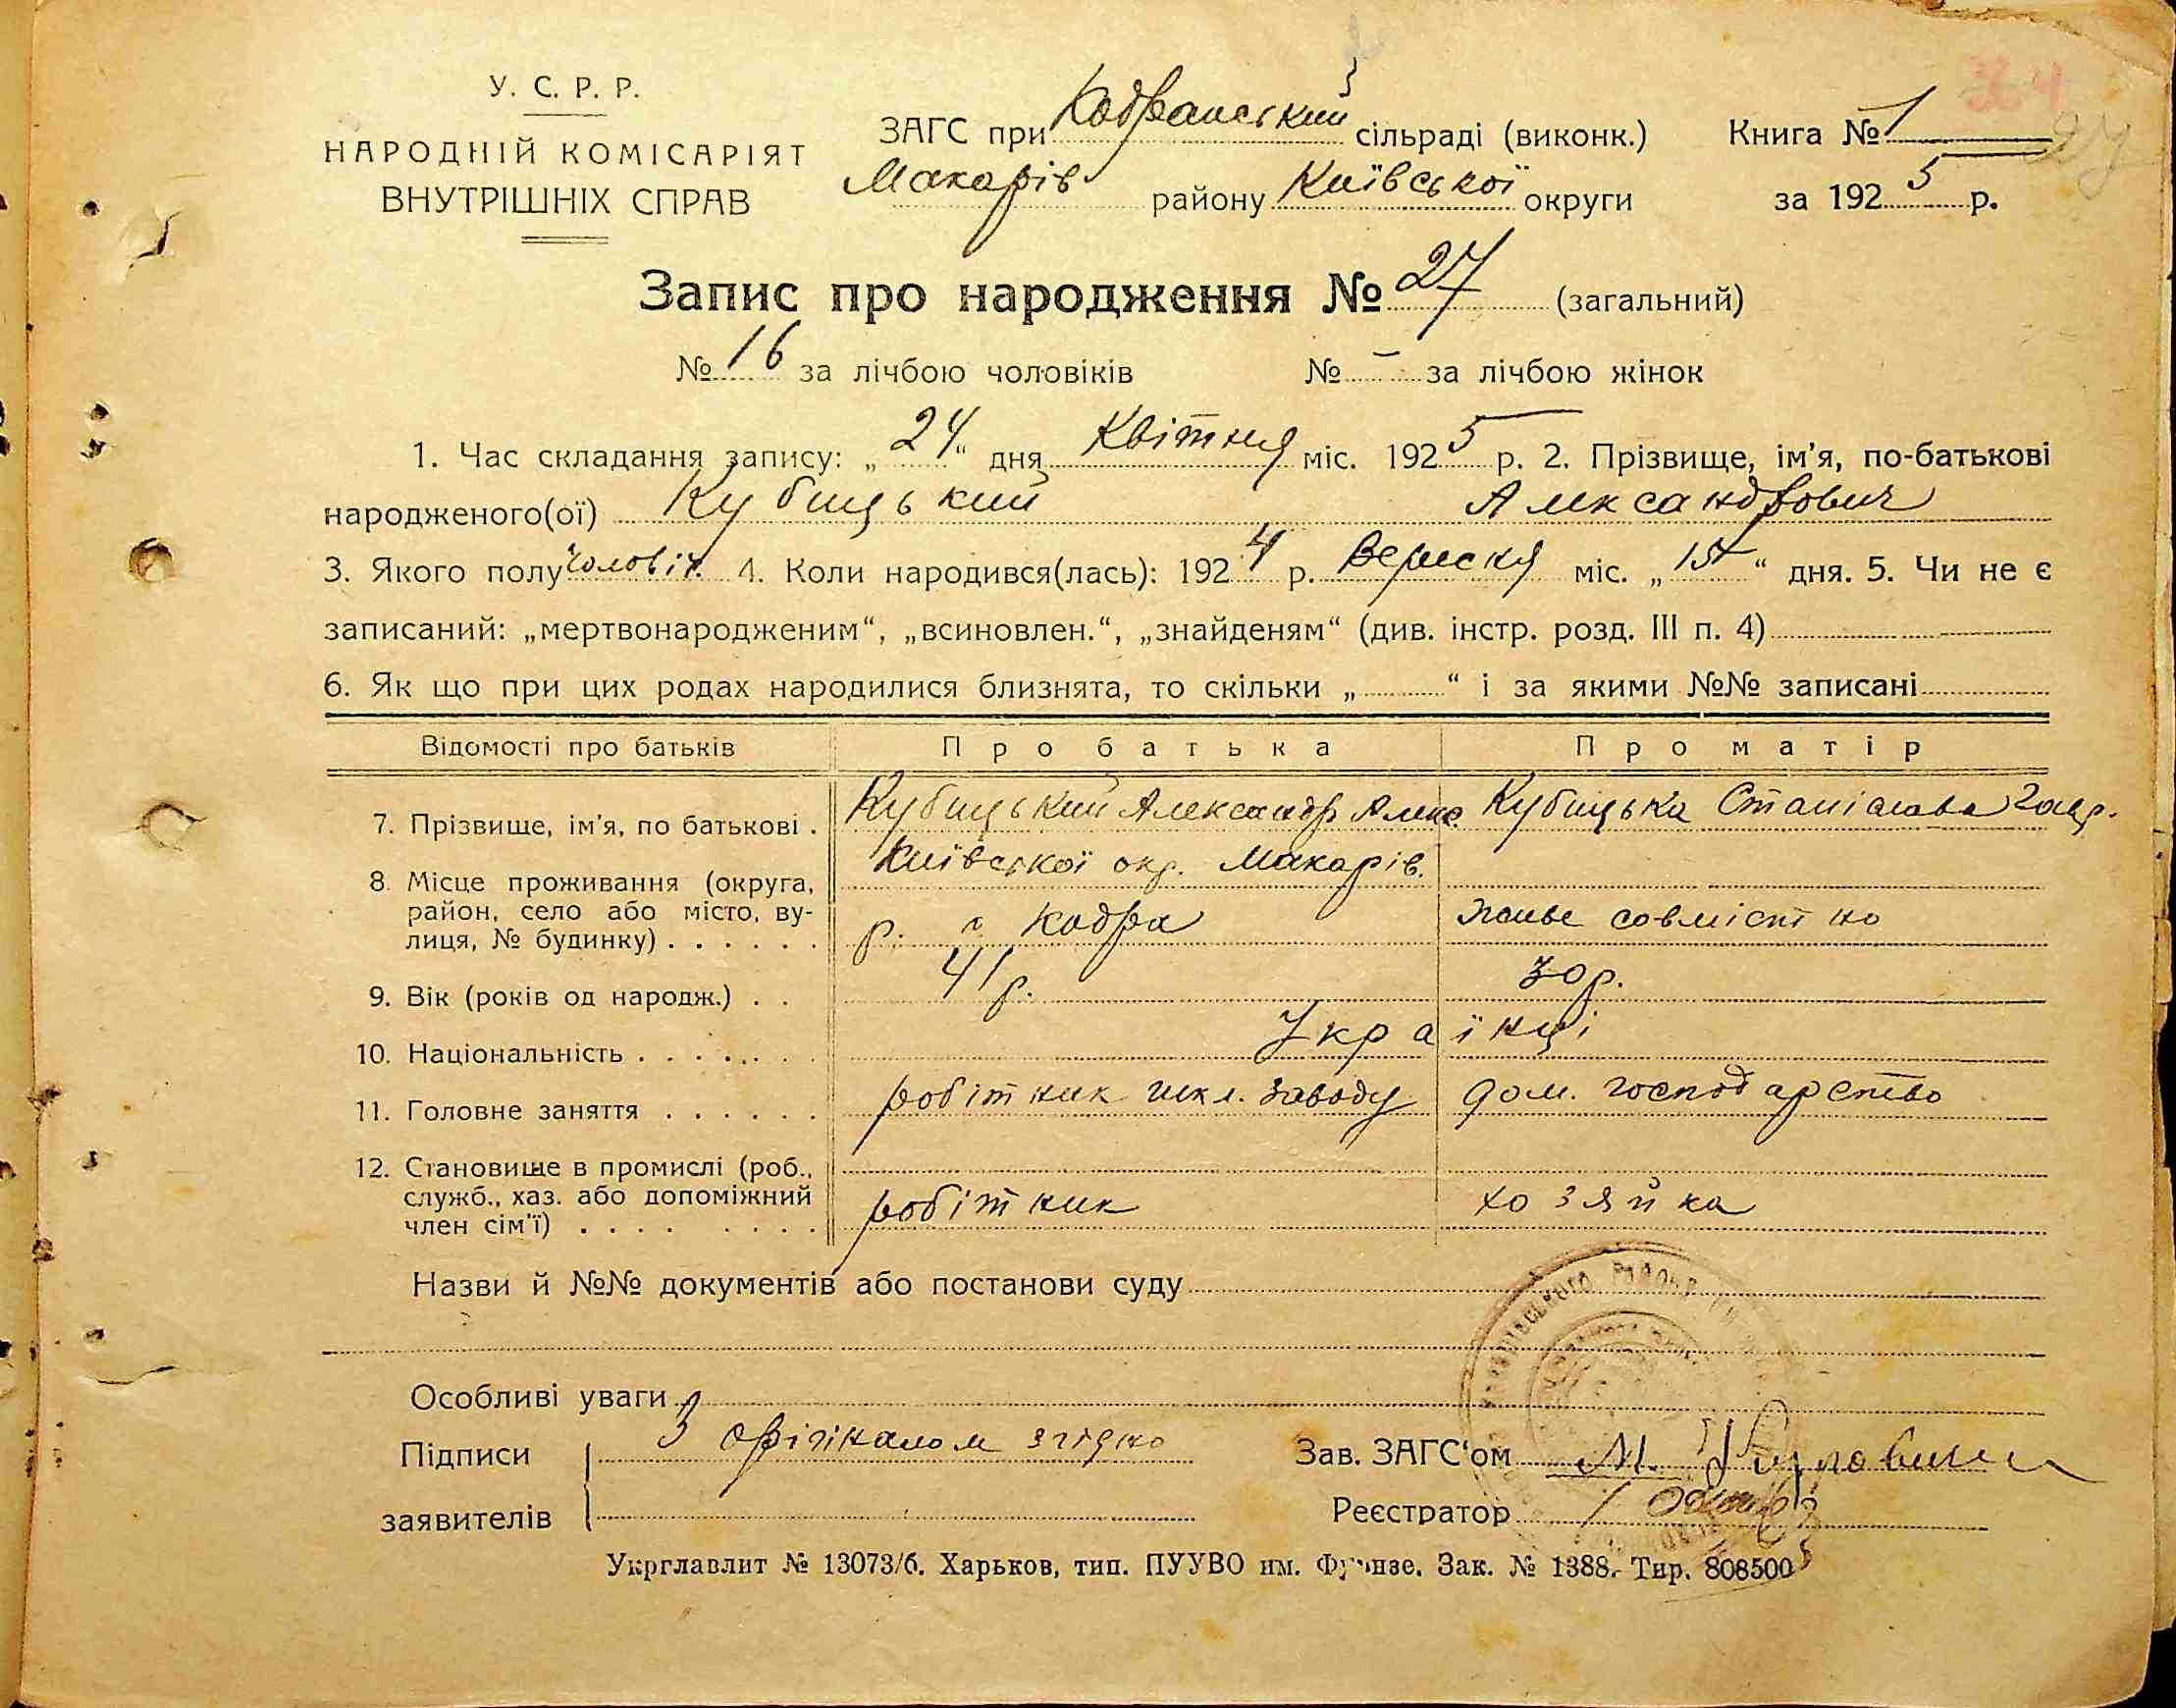 У. С. Р. Р.
НАРОДНІЙ КОМІСАРІЯТ
ВНУТРІШНІХ СПРАВ
ЗАГС при Кодранський сільраді (виконк.) Книга № 1
Макарів району Київської округи за 1925 р.
364
27
Запис про народження № 27 (загальний)
№ 16 за лічбою чоловіків № – за лічбою жінок
1. Час складання запису: „24“ дня Квітня міс. 1925 р. 2. Прізвище, ім'я, по-батькові
народженого(ої) Кубицький Александрович
3. Якого полу чоловіч. 4. Коли народився(лась): 1924 р. Вересня міс. „15“ дня. 5. Чи не є
записаний: „мертвонародженим“, „всиновлен.“, „знайденям“ (див. інстр. розд. III п. 4)
6. Як що при цих родах народилися близнята, то скільки „ “ і за якими №№ записані
Відомості про батьків Про батька Про матір
7. Прізвище, ім'я, по батькові . Кубицький Александр Алекс. Кубицька Станіслава Гавр.
8. Місце проживання (округа, район, село або місто, вулиця, № будинку) . . . . . . Київської окр. Макарів.
р. с. Кодра живе совмістно
9. Вік (років од народж.) . . 41 р. 30 р.
10. Національність . . . . . . . Українці
11. Головне заняття . . . . . . робітник шкл. заводу дом. господарство
12. Становище в промислі (роб., служб., хаз. або допоміжний член сім'ї) . . . . . . . . робітник хозяйка
Назви й №№ документів або постанови суду
Особливі уваги
Підписи З орігіналом згідно Зав. ЗАГС'ом М.
заявителів Реєстратор
Укрглавлит № 13073/б. Харьков, тип. ПУУВО им. Фрунзе. Зак. № 1388. Тир. 808500